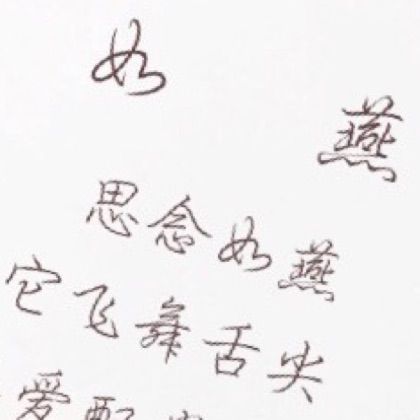 如燕
思念如燕
它飞舞舌尖
爱配